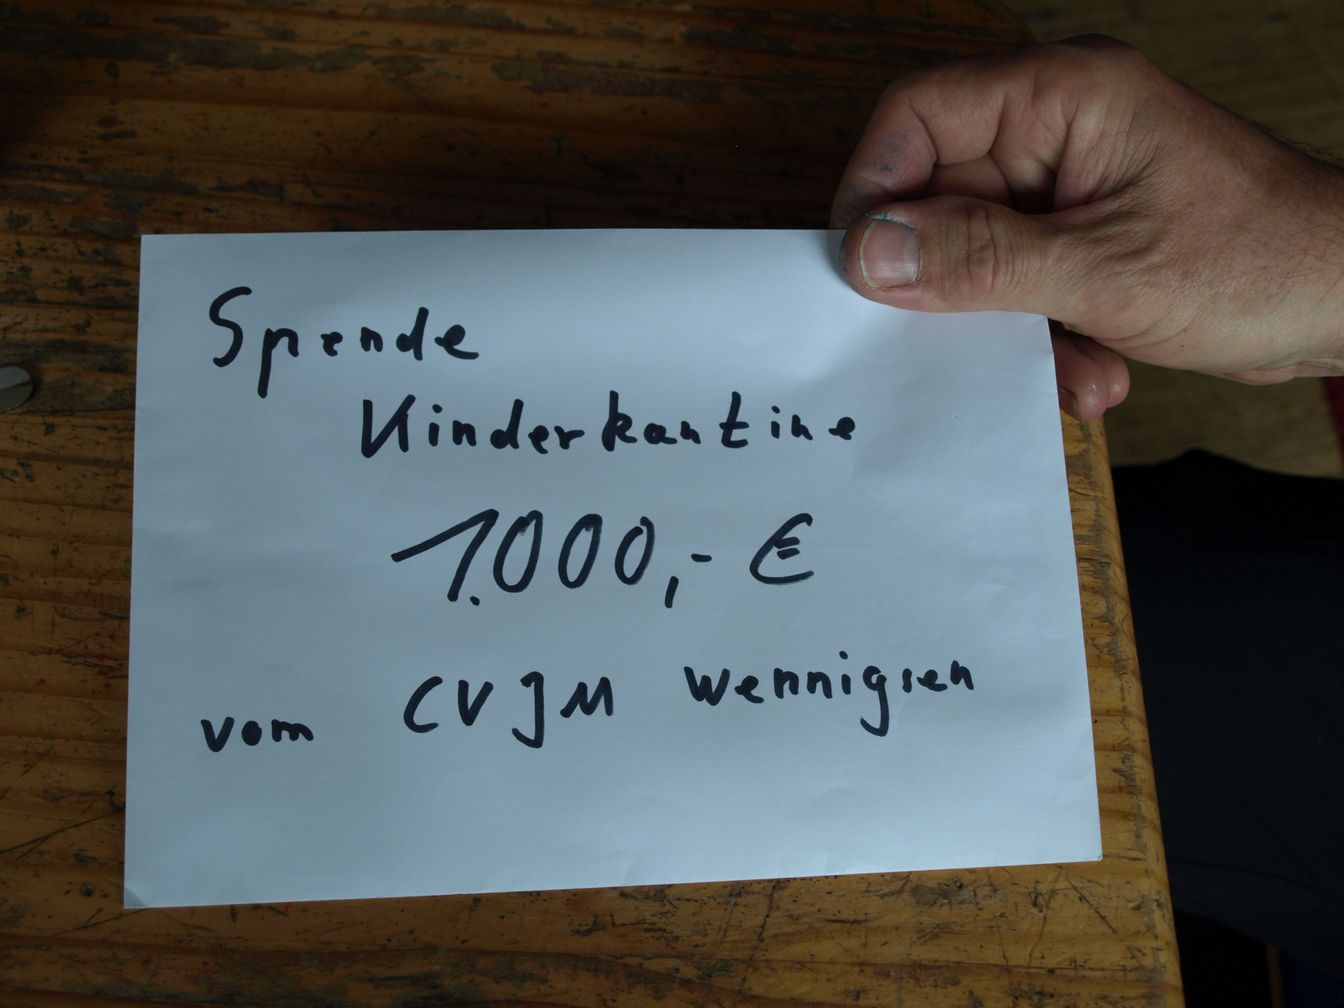 Spende
Kinderkantine
1.000,- €
vom CVJM Wennigsen